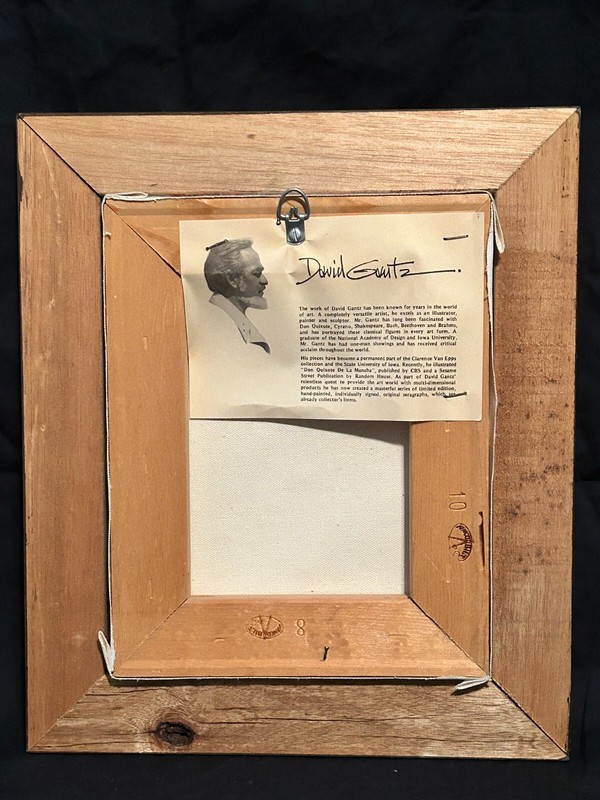 David Gantz
The work of David Gantz has been known for years in the world
of art. A completely versatile artist, he excels as an illustrator,
painter and sculptor. Mr. Gantz has long been fascinated with
Don Quixote, Cyrano, Shakespeare, Bach, Beethoven and Brahms,
and has portrayed these classical figures in every art form. A
graduate of the National Academy of Design and Iowa University,
Mr. Gantz has had one-man showings and has received critical
acclaim throughout the world.
His pieces have become a permanent part of the Clarence Van Epps
collection and the State University of Iowa. Recently, he illustrated
"Don Quixote De La Mancha", published by CBS and a Sesame
Street Publication by Random House. As part of David Gantz'
relentless quest to provide the art world with multi-dimensional
products he has now created a masterful series of limited edition,
hand-painted, individually signed, original seragraphs, which are
already collector's items.
10
8